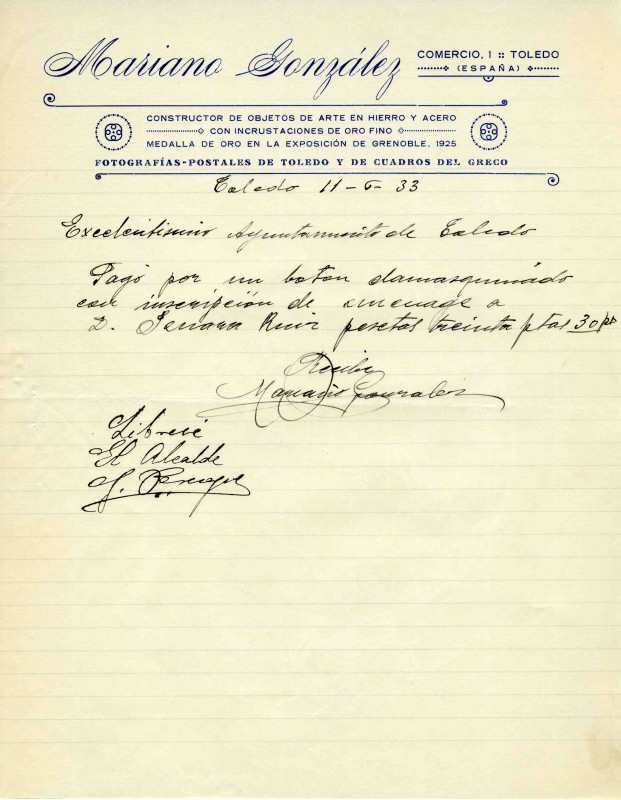 Mariano González
COMERCIO, 1 :: TOLEDO
(ESPAÑA)
CONSTRUCTOR DE OBJETOS DE ARTE EN HIERRO Y ACERO
CON INCRUSTACIONES DE ORO FINO
MEDALLA DE ORO EN LA EXPOSICIÓN DE GRENOBLE, 1925
FOTOGRAFÍAS-POSTALES DE TOLEDO Y DE CUADROS DEL GRECO
Toledo 11-6-33
Excelentisimo Ayuntamiento de Toledo
Pagó por un boton damasquinado
con inscripción de omenage a
D. Ruiz pesetas treinta ptas 30 pts
Recibi
Mariano Gonzalez
Librese
El Alcalde